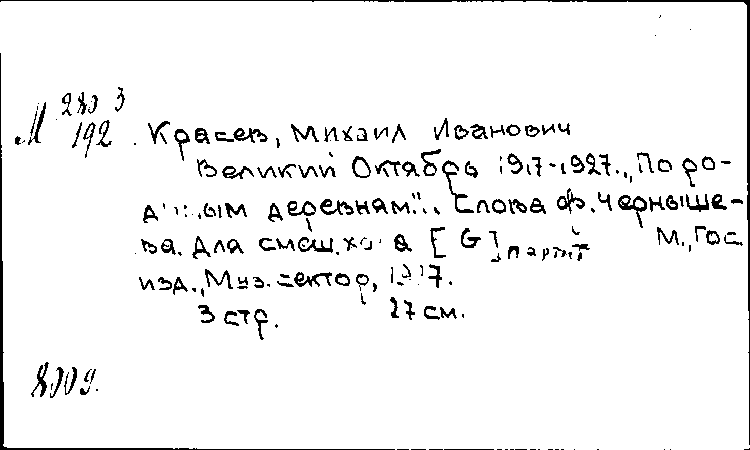 М 280 3
192
Красев, Михаил Иванович
Великий Октябрь 1917-1927. „По ро-
дным деревням". Слова Ф. Черныше-
ва. Для смеш. хора [G] партит М., Гос.
изд., Муз. сектор, 1927.
3 стр. 27 см.
8009.